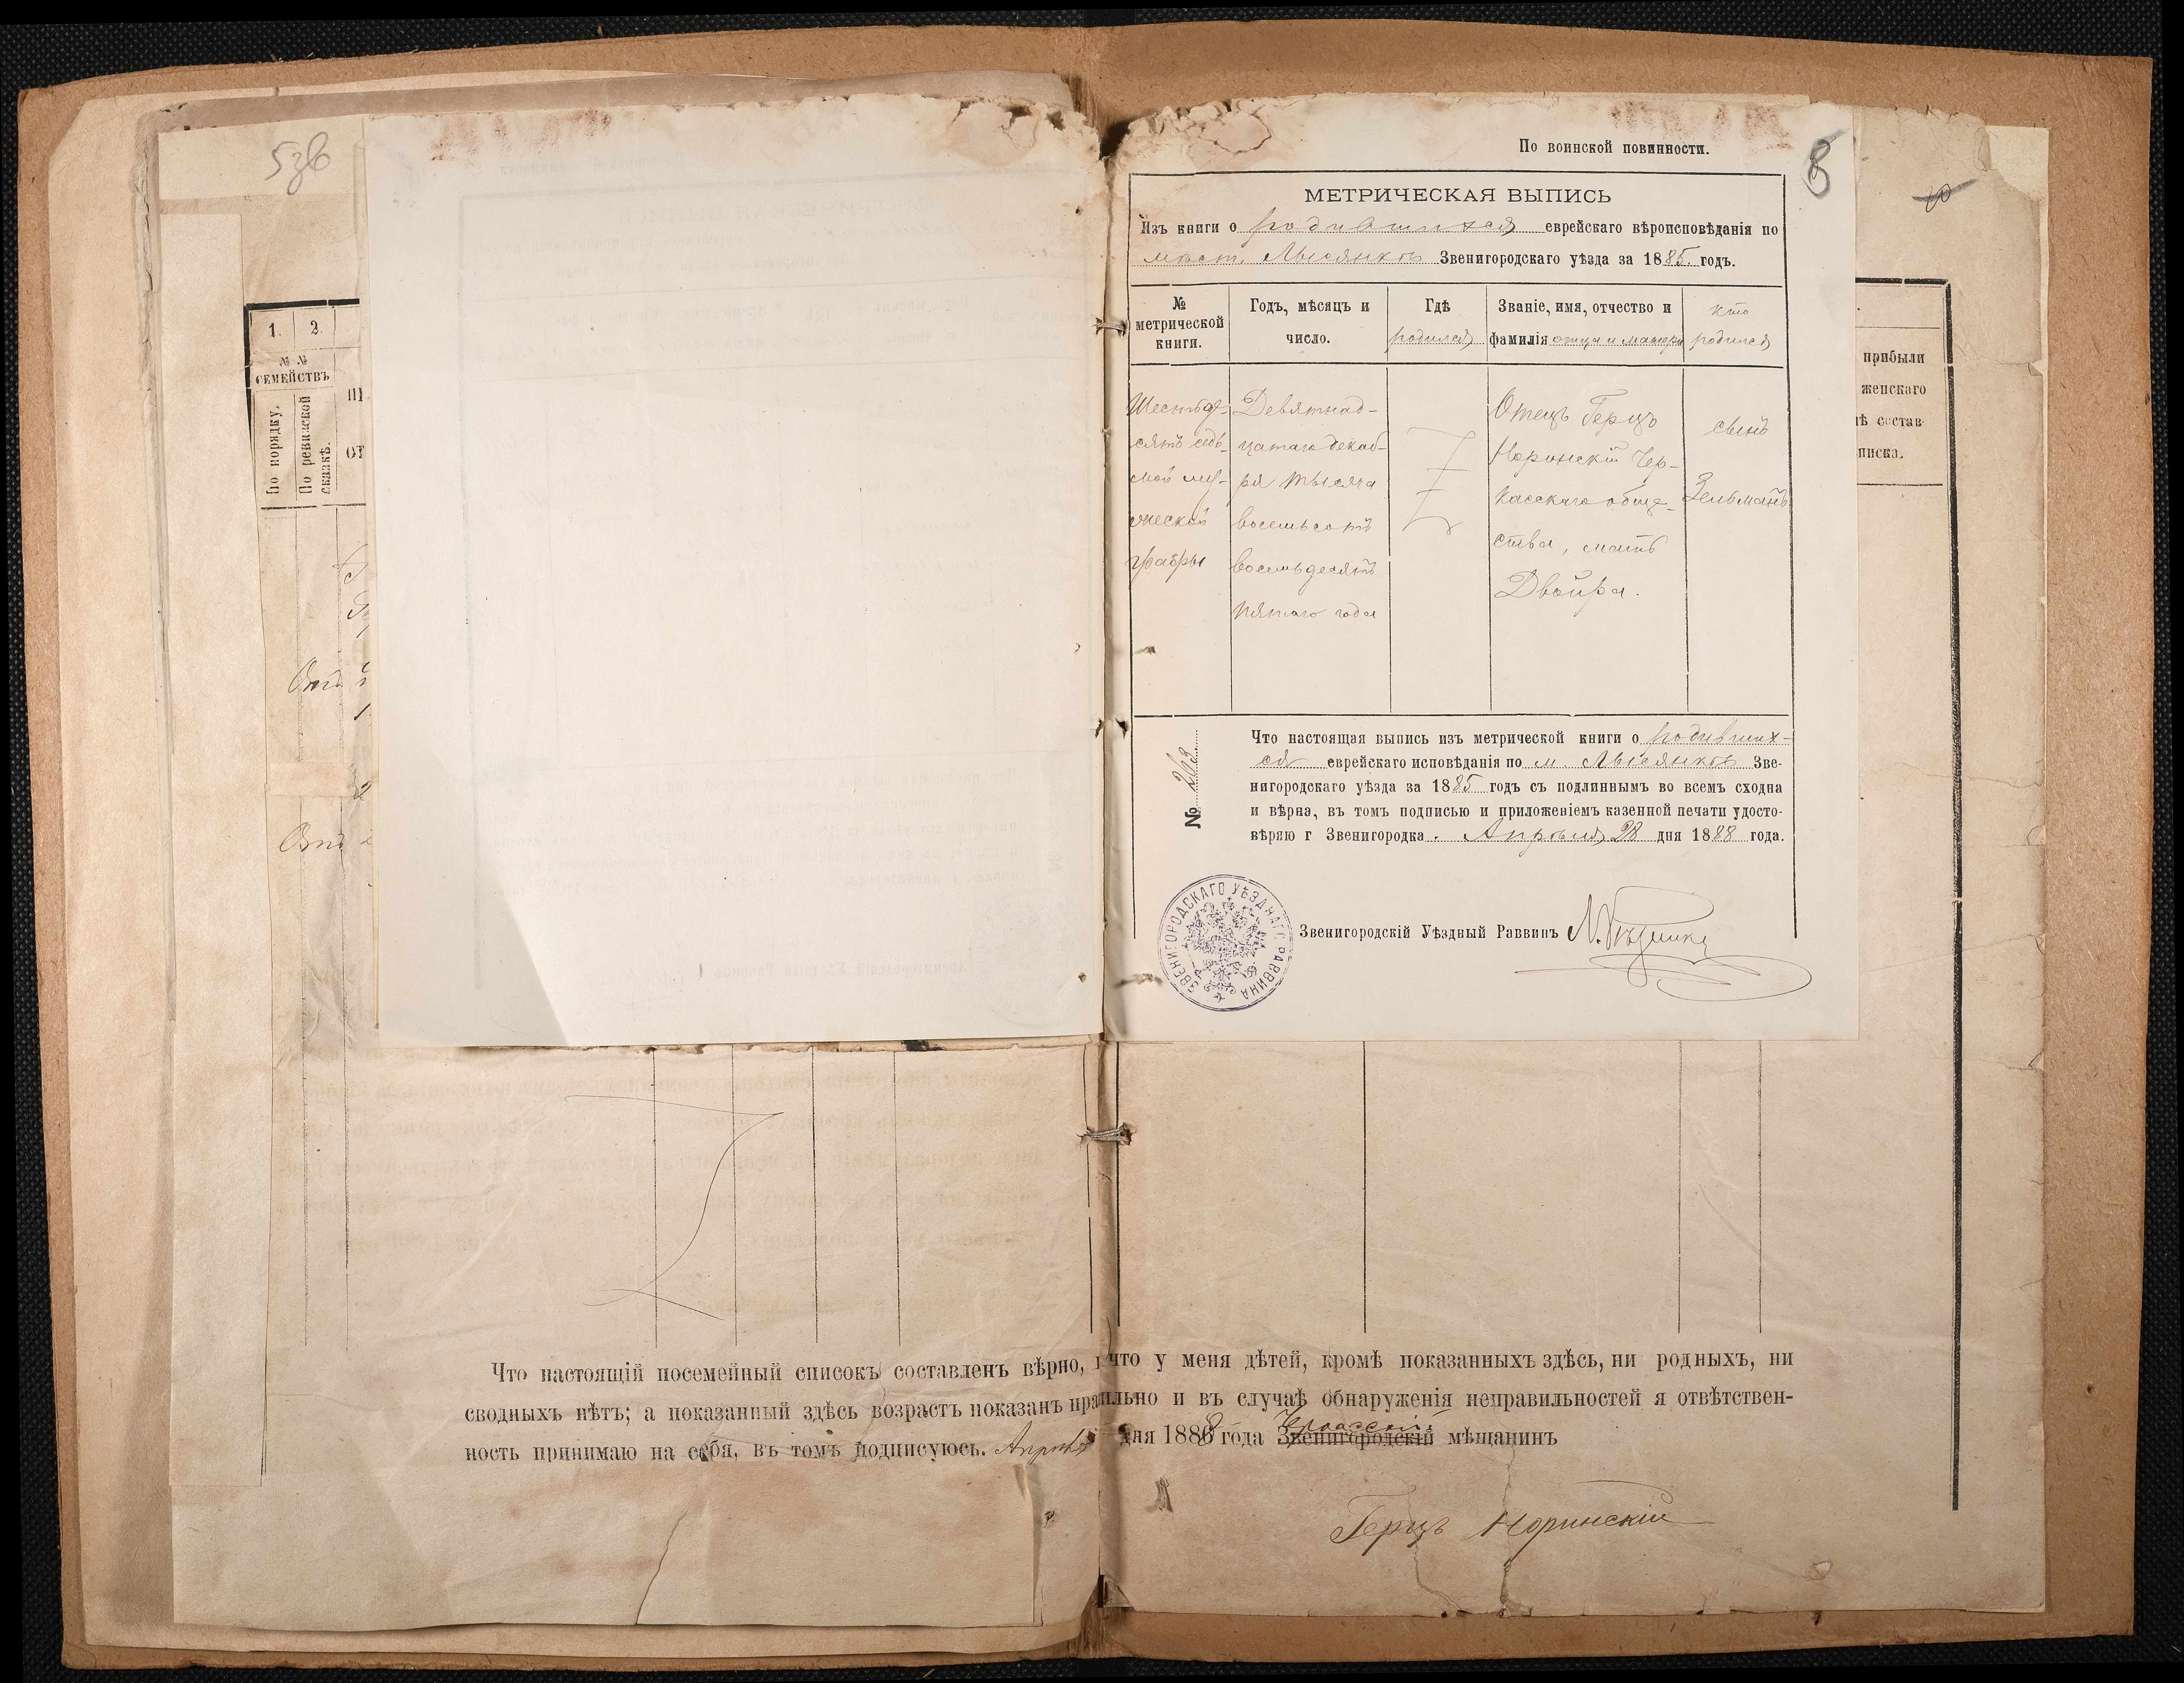 536
1. 2.
№ №
СЕМЕЙСТВЪ
По порядку.
По ревизской
сказкѣ.
По воинской повинности.
8
МЕТРИЧЕСКАЯ ВЫПИСЬ
Изъ книги о родившихся еврейскаго вѣроисповѣданія по
мѣст. Лысянкѣ Звенигородскаго уѣзда за 1885. годъ.
№
метрической
книги.
Годъ, мѣсяцъ и
число.
Гдѣ
родился
Званіе, имя, отчество и
фамилія отца и матери
кто
родился
Шестьде-
сятъ седь-
мой му-
жеской
графы
Девятнад-
цатаго декаб-
ря тысяча
восемьсотъ
восемьдесятъ
пятаго года
Отецъ Герцъ
Норинскій Чер-
касскаго обще-
ства, мать
Двойра.
сынъ
Зельманъ
№
Что настоящая выпись изъ метрической книги о родивших-
ся еврейскаго исповѣданія по м. Лысянкѣ Зве-
нигородскаго уѣзда за 1885 годъ съ подлиннымъ во всемъ сходна
и вѣрна, въ томъ подписью и приложеніемъ казенной печати удосто-
вѣряю г Звенигородка. Апрѣля 28 дня 1888 года.
Звенигородскій Уѣздный Раввинъ
ЗВЕНИГОРОДСКАГО УѢЗДНАГО РАВВИНА
прибыли
женскаго
ѣ состав-
писка.
Что настоящій посемейный списокъ составленъ вѣрно, и что у меня дѣтей, кромѣ показанныхъ здѣсь, ни родныхъ, ни
сводныхъ нѣтъ; а показанный здѣсь возрастъ показанъ правильно и въ случаѣ обнаруженія неправильностей я отвѣтствен-
ность принимаю на себя, въ томъ подписуюсь. Апрѣля дня 1888 года Звенигородскій мѣщанинъ
Герцъ Норинскій